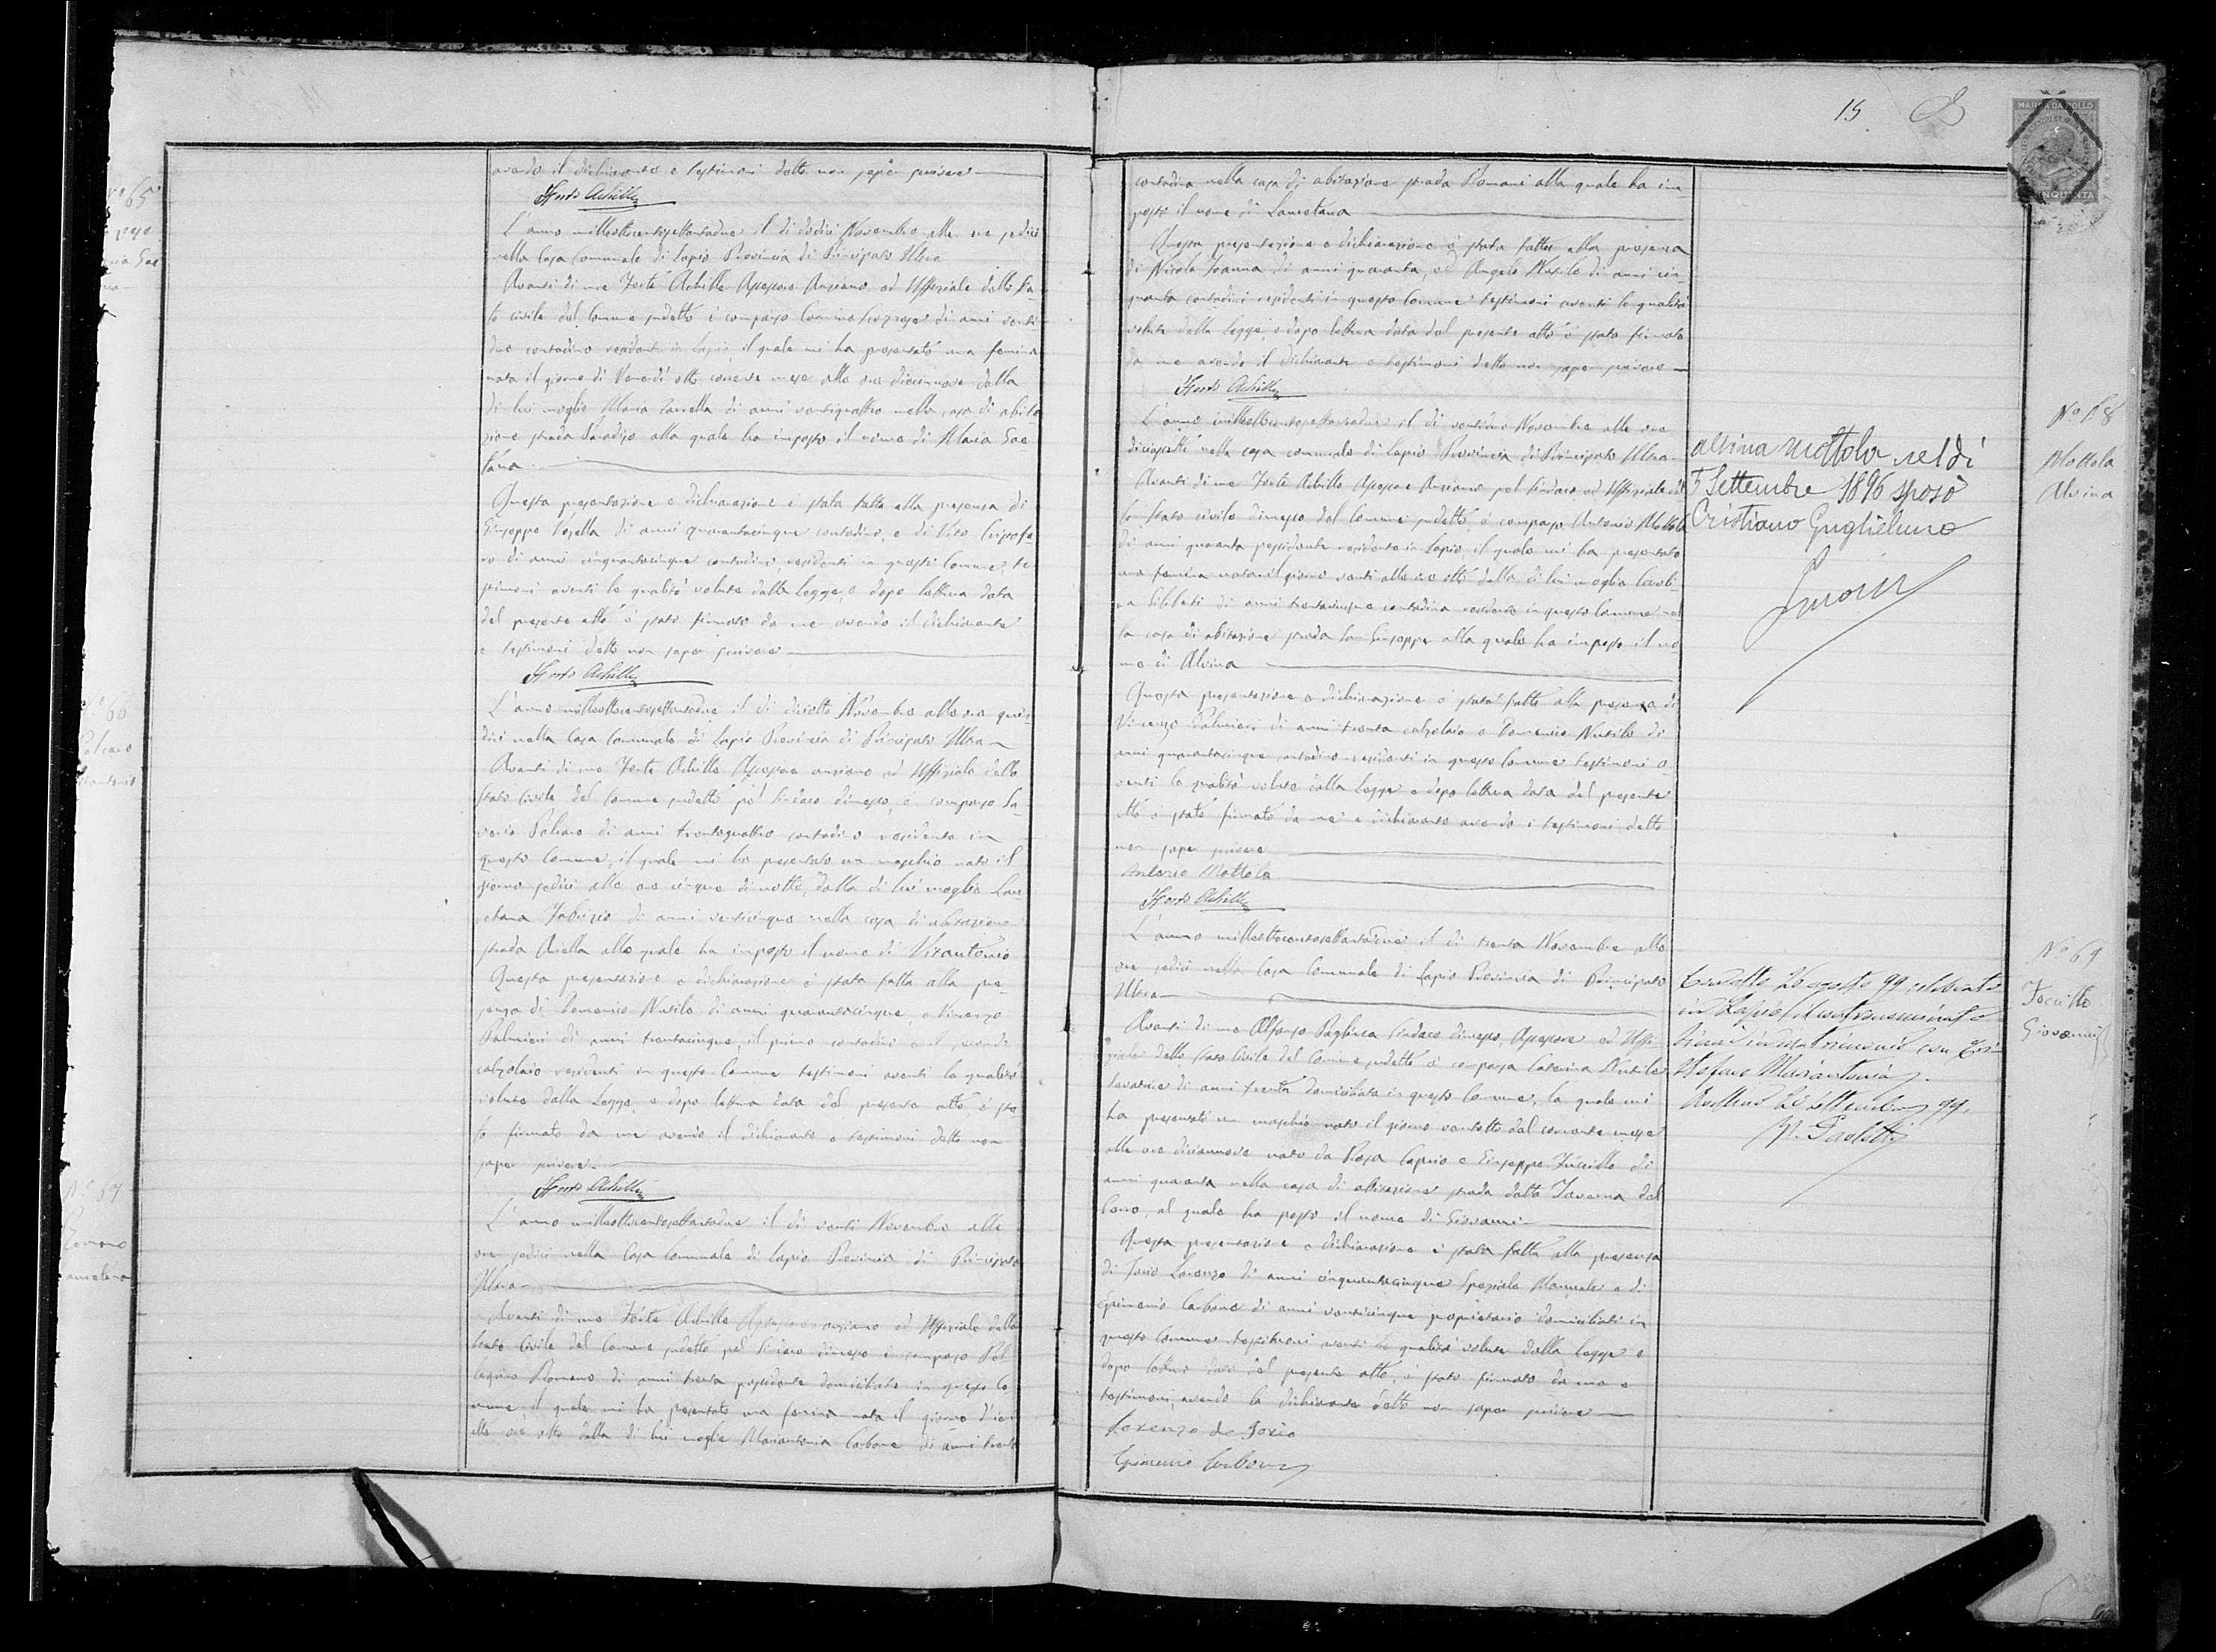 avendo il dichiarante e testimoni detto non saper scrivere
Forte Achille
N° 65
L'anno milleottocentosettantadue il dì dodici Novembre alle ore sedici
nella Casa Comunale di Lapio Provincia di Principato Ultra
Avanti di me Forte Achille Assessore Anziano ed Uffiziale dello Sta-
to civile del Comune sudetto è comparso Carmine di anni venti-
due contadino residente in Lapio, il quale mi ha presentato una femina
nata il giorno di Venerdì otto corrente mese alle ore diecinnove dalla
di lui moglie Maria Zarrella di anni ventiquattro nella casa di abita
zione strada Paradiso alla quale ha imposto il nome di Maria Gae
tana
Questa presentazione e dichiarazione è stata fatta alla presenza di
Giuseppe Vosella di anni quarantacinque contadino, e di Vito
ro di anni cinquantacinque contadini, residenti in questo Comune, te
stimoni aventi le qualità volute dalla Legge, e dopo lettura data
del presente atto è stato firmato da me avendo il dichiarante
e testimoni detto non saper scrivere
Forte Achille
N° 66
Polcaro
Vitantonio
L'anno milleottocentosettantadue il dì diciotto Novembre alle ore quin-
dici nella Casa Comunale di Lapio Provincia di Principato Ultra
Avanti di me Forte Achille Assessore anziano ed Uffiziale dello
Stato Civile del Comune sudetto pel Sindaco dimesso, è comparso Sa-
verio Polcaro di anni trentaquattro contadino residente in
questo Comune, il quale mi ha presentato un maschio nato il
giorno sedici alle ore cinque di notte, dalla di lui moglie Lau
retana Fabrizio di anni venticinque nella casa di abitazione
strada Aiella allo quale ha imposto il nome di Vitantonio
Questa presentazione e dichiarazione è stata fatta alla pre-
senza di Domenico Musile di anni quarantacinque, e Vincenzo
Palmieri di anni trentacinque, il primo contadini e il secondo
calzolaio residenti in questo Comune testimoni aventi le qualità
volute dalla Legge, e dopo lettura data del presente atto, è sta
to firmato da me avendo il dichiarante e testimoni detto non
saper scrivere
Forte Achille
N° 67
Romano
Lauretana
L'anno milleottocentosettantadue il dì venti Novembre alle
ore sedici nella Casa Comunale di Lapio Provincia di Principato
Ultra
Avanti di me Forte Achille Assessore anziano ed Uffiziale dello
Stato Civile del Comune sudetto pel Sindaco dimesso è comparso Pel
legrino Romano di anni trenta possidente domiciliato in questo Co
mune il quale mi ha presentato una femina nata il giorno d'ieri
alle ore otto dalla di lui moglie Mariantonia Carbone di anni trenta
15
MARCA DA BOLLO
contadina nella casa di abitazione strada Romani alla quale ha im
posto il nome di Lauretana
Questa presentazione e dichiarazione è stata fatta alla presenza
di Nicola Ioanna di anni quaranta, ed Angelo Musile di anni cin
quanta contadini residenti in questo Comune testimoni aventi le qualità
volute dalla Legge, e dopo lettura data del presente atto è stato firmato
da me avendo il dichiarante e testimoni detto non saper scrivere
Forte Achille
N° 68
Mottola
Alvina
L'anno milleottocentosettantadue il dì ventidue Novembre alle ore
diciasette nella casa comunale di Lapio Provincia di Principato Ultra
Avanti di me Forte Achille Assessore Anziano pel Sindaco ed Uffiziale del
lo stato civile dimesso del Comune sudetto, è comparso Antonio Mottola
di anni quaranta possidente residente in Lapio, il quale mi ha presentato
una femina nata il giorno venti alle ore otto dalla di lui moglie Caroli-
na di anni trentacinque contadina residente in questo Comune nel
la casa di abitazione strada San Giuseppe alla quale ha imposto il no-
me di Alvina
Questa presentazione e dichiarazione è stata fatta alla presenza di
Vincenzo Palmieri di anni trenta calzolaio e Domenico Musile di
anni quarantacinque contadino residenti in questo Comune testimoni a-
venti le qualità volute dalla Legge e dopo lettura data del presente
atto è stato firmato da me e dichiarante avendo i testimoni detto
non saper scrivere
Antonio Mottola
Forte Achille
alvina Mottola nel dì
5 Settembre 1896 sposò
Cristiano Guglielmo
N° 69
Iscritto
Giovanni
L'anno milleottocentosettantadue il dì trenta Novembre alle
ore sedici nella Casa Comunale di Lapio Provincia di Principato
Ultra
Avanti di me Alfonso Sindaco dimesso, Assessore ed Uffi-
ziale dello Stato Civile del Comune sudetto è comparsa Caterina Musile
levatrice di anni trenta domiciliata in questo Comune, la quale mi
ha presentato un maschio nato il giorno ventotto del corrente mese
alle ore dicinnove nato da Rosa Caprio e Giuseppe di
anni quaranta nella casa di abitazione strada detta Taverna del
Cano, al quale ha posto il nome di Giovanni
Questa presentazione e dichiarazione è stata fatta alla presenza
di Iorio Lorenzo di anni cinquantacinque Speziale Manuale e di
Epimenio Carbone di anni venticinque proprietario domiciliati in
questo Comune testimoni aventi le qualità volute dalla Legge e
dopo lettura data del presente atto, è stato firmato da me e
testimoni, avendo la dichiarante detto non saper scrivere
Lorenzo de Iorio
Epimenio Carbone
26 agosto 99 celebrato
in Lapio
matrimonio con
Stefano Mariantonia
Avellino 20 settembre 99.
P. Paoletti